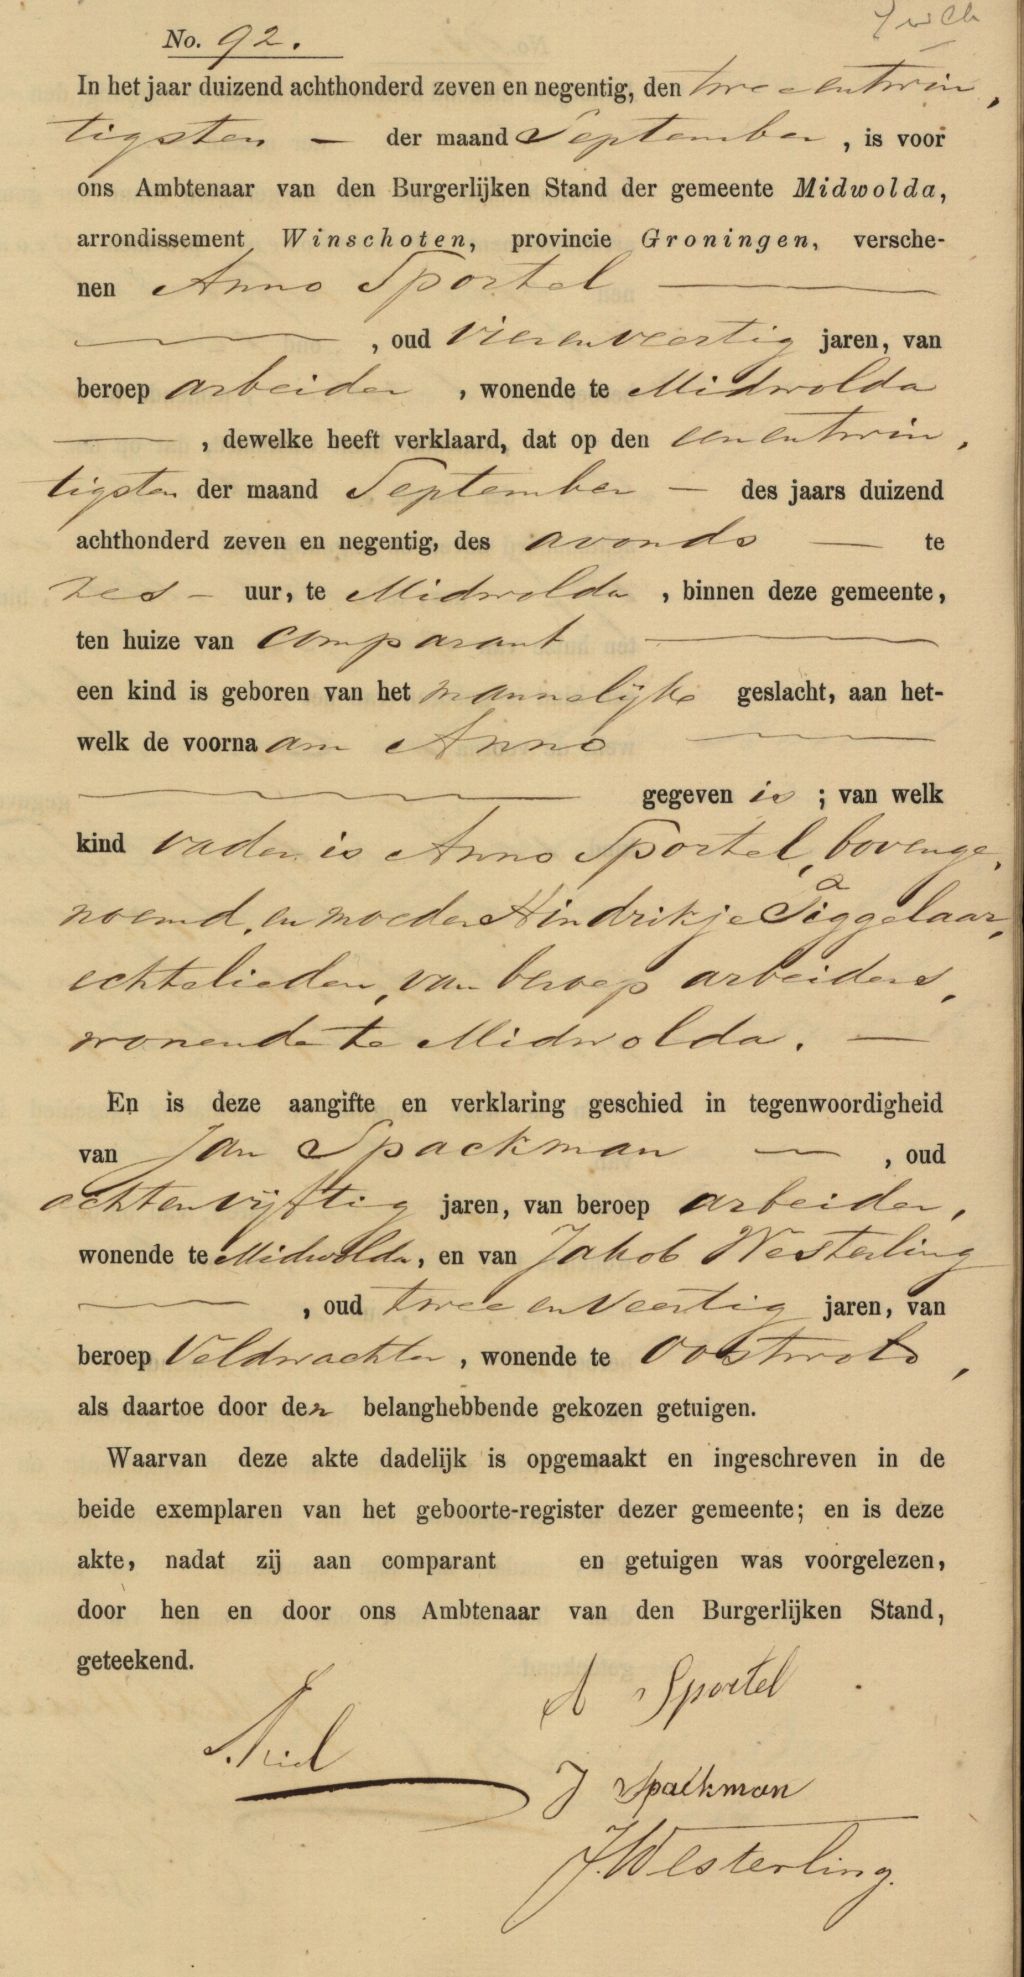 No. 92.
In het jaar duizend achthonderd zeven en negentig, den twee entwin,
tigsten — der maand September, is voor
ons Ambtenaar van den Burgerlijken Stand der gemeente Midwolda,
arrondissement Winschoten, provincie Groningen, versche-
nen Anno Sportel —
—, oud vierenveertig jaren, van
beroep arbeider, wonende te Midwolda
—, dewelke heeft verklaard, dat op den eenentwin,
tigsten der maand September — des jaars duizend
achthonderd zeven en negentig, des avonds — te
zes — uur, te Midwolda, binnen deze gemeente,
ten huize van comparant —
een kind is geboren van het mannelijke geslacht, aan het-
welk de voornaam Anno —
— gegeven is; van welk
kind vader is Anno Sportel, bovenge,
noemd, en moeder Hindrikje Tiggelaar,
echtelieden, van beroep arbeiders,
wonende te Midwolda. —
En is deze aangifte en verklaring geschied in tegenwoordigheid
van Jan Spackman —, oud
achtenvijftig jaren, van beroep arbeider,
wonende te Midwolda, en van Jakob Westerling
—, oud twee en veertig jaren, van
beroep Veldwachter, wonende te Oostwold,
als daartoe door den belanghebbende gekozen getuigen.
Waarvan deze akte dadelijk is opgemaakt en ingeschreven in de
beide exemplaren van het geboorte-register dezer gemeente; en is deze
akte, nadat zij aan comparant en getuigen was voorgelezen,
door hen en door ons Ambtenaar van den Burgerlijken Stand,
geteekend.
A Sportel
J Spackman
J. Westerling.